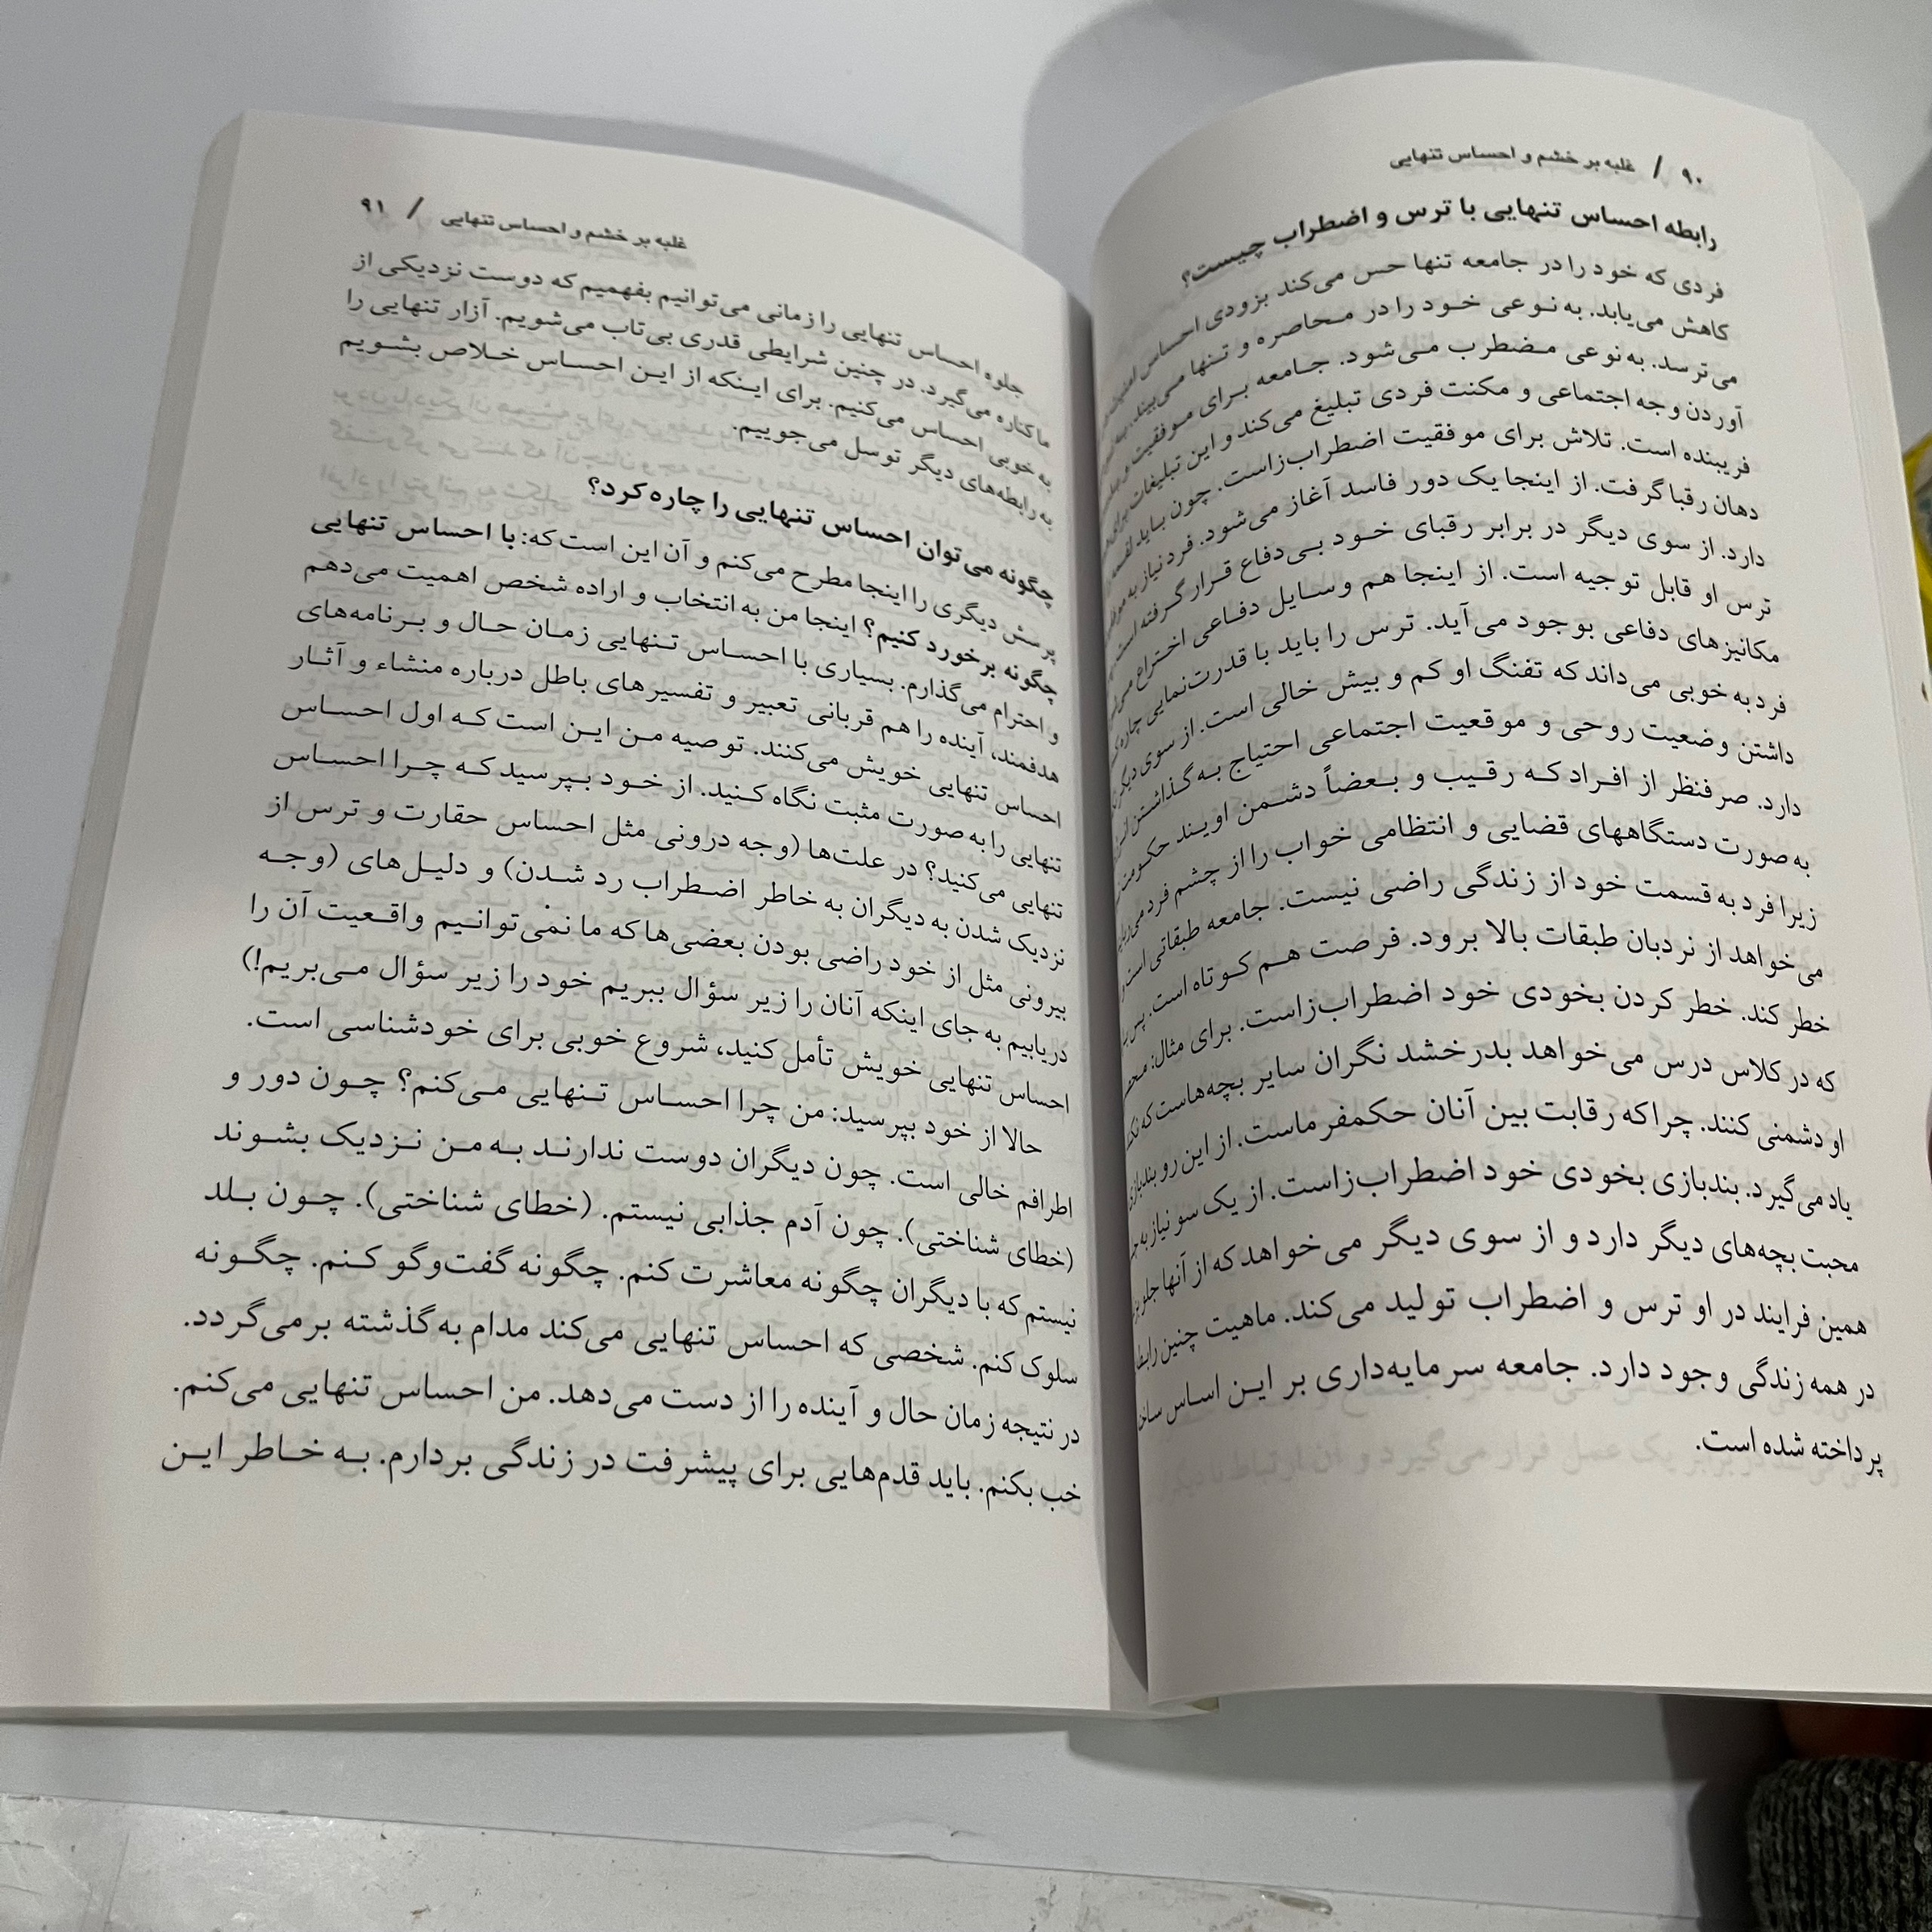 ۹۰ / غلبه بر خشم و احساس تنهایی
رابطه احساس تنهایی با ترس و اضطراب چیست؟
فردی که خود را در جامعه تنها حس می‌کند بزودی احساس
کاهش می‌یابد. به نوعی خود را در محاصره و تنها می‌بیند.
می‌ترسد. به نوعی مضطرب می‌شود. جامعه برای موفقیت و
آوردن وجه اجتماعی و مکنت فردی تبلیغ می‌کند و این تبلیغات
فریبنده است. تلاش برای موفقیت اضطراب‌زاست. چون باید لقمه
دهان رقبا گرفت. از اینجا یک دور فاسد آغاز می‌شود. فرد نیاز به
دارد. از سوی دیگر در برابر رقبای خود بی‌دفاع قرار گرفته است.
ترس او قابل توجیه است. از اینجا هم وسایل دفاعی اختراع
مکانیزهای دفاعی بوجود می‌آید. ترس را باید با قدرت‌نمایی چاره
فرد به خوبی می‌داند که تفنگ او کم و بیش خالی است. از سوی دیگر
داشتن وضعیت روحی و موقعیت اجتماعی احتیاج به گذاشتن
دارد. صرفنظر از افراد که رقیب و بعضاً دشمن اویند حکومت
به صورت دستگاههای قضایی و انتظامی خواب را از چشم فرد
زیرا فرد به قسمت خود از زندگی راضی نیست. جامعه طبقاتی است
می‌خواهد از نردبان طبقات بالا برود. فرصت هم کوتاه است. پس
خطر کند. خطر کردن بخودی خود اضطراب‌زاست. برای مثال:
که در کلاس درس می‌خواهد بدرخشد نگران سایر بچه‌هاست که
او دشمنی کنند. چرا که رقابت بین آنان حکمفرماست. از این رو بندبازی
یاد می‌گیرد. بندبازی بخودی خود اضطراب‌زاست. از یک سو نیاز به
محبت بچه‌های دیگر دارد و از سوی دیگر می‌خواهد که از آنها جلو
همین فرایند در او ترس و اضطراب تولید می‌کند. ماهیت چنین
در همه زندگی وجود دارد. جامعه سرمایه‌داری بر این اساس
پرداخته شده است.
غلبه بر خشم و احساس تنهایی / ۹۱
جلوه احساس تنهایی را زمانی می‌توانیم بفهمیم که دوست نزدیکی از
ما کناره می‌گیرد. در چنین شرایطی قدری بی‌تاب می‌شویم. آزار تنهایی را
به خوبی احساس می‌کنیم. برای اینکه از این احساس خلاص بشویم
به رابطه‌های دیگر توسل می‌جوییم.
چگونه می‌توان احساس تنهایی را چاره کرد؟
پرسش دیگری را اینجا مطرح می‌کنم و آن این است که: با احساس تنهایی
چگونه برخورد کنیم؟ اینجا من به انتخاب و اراده شخص اهمیت می‌دهم
و احترام می‌گذارم. بسیاری با احساس تنهایی زمان حال و برنامه‌های
هدفمند، آینده را هم قربانی تعبیر و تفسیرهای باطل درباره منشاء و آثار
احساس تنهایی خویش می‌کنند. توصیه من این است که اول احساس
تنهایی را به صورت مثبت نگاه کنید. از خود بپرسید که چرا احساس
تنهایی می‌کنید؟ در علت‌ها (وجه درونی مثل احساس حقارت و ترس از
نزدیک شدن به دیگران به خاطر اضطراب رد شدن) و دلیل‌های (وجه
بیرونی مثل از خود راضی بودن بعضی‌ها که ما نمی‌توانیم واقعیت آن را
دریابیم به جای اینکه آنان را زیر سؤال ببریم خود را زیر سؤال می‌بریم!)
احساس تنهایی خویش تأمل کنید، شروع خوبی برای خودشناسی است.
حالا از خود بپرسید: من چرا احساس تنهایی می‌کنم؟ چون دور و
اطرافم خالی است. چون دیگران دوست ندارند به من نزدیک بشوند
(خطای شناختی). چون آدم جذابی نیستم. (خطای شناختی). چون بلد
نیستم که با دیگران چگونه معاشرت کنم. چگونه گفت‌وگو کنم. چگونه
سلوک کنم. شخصی که احساس تنهایی می‌کند مدام به گذشته برمی‌گردد.
در نتیجه زمان حال و آینده را از دست می‌دهد. من احساس تنهایی می‌کنم.
خب بکنم. باید قدم‌هایی برای پیشرفت در زندگی بردارم. به خاطر این